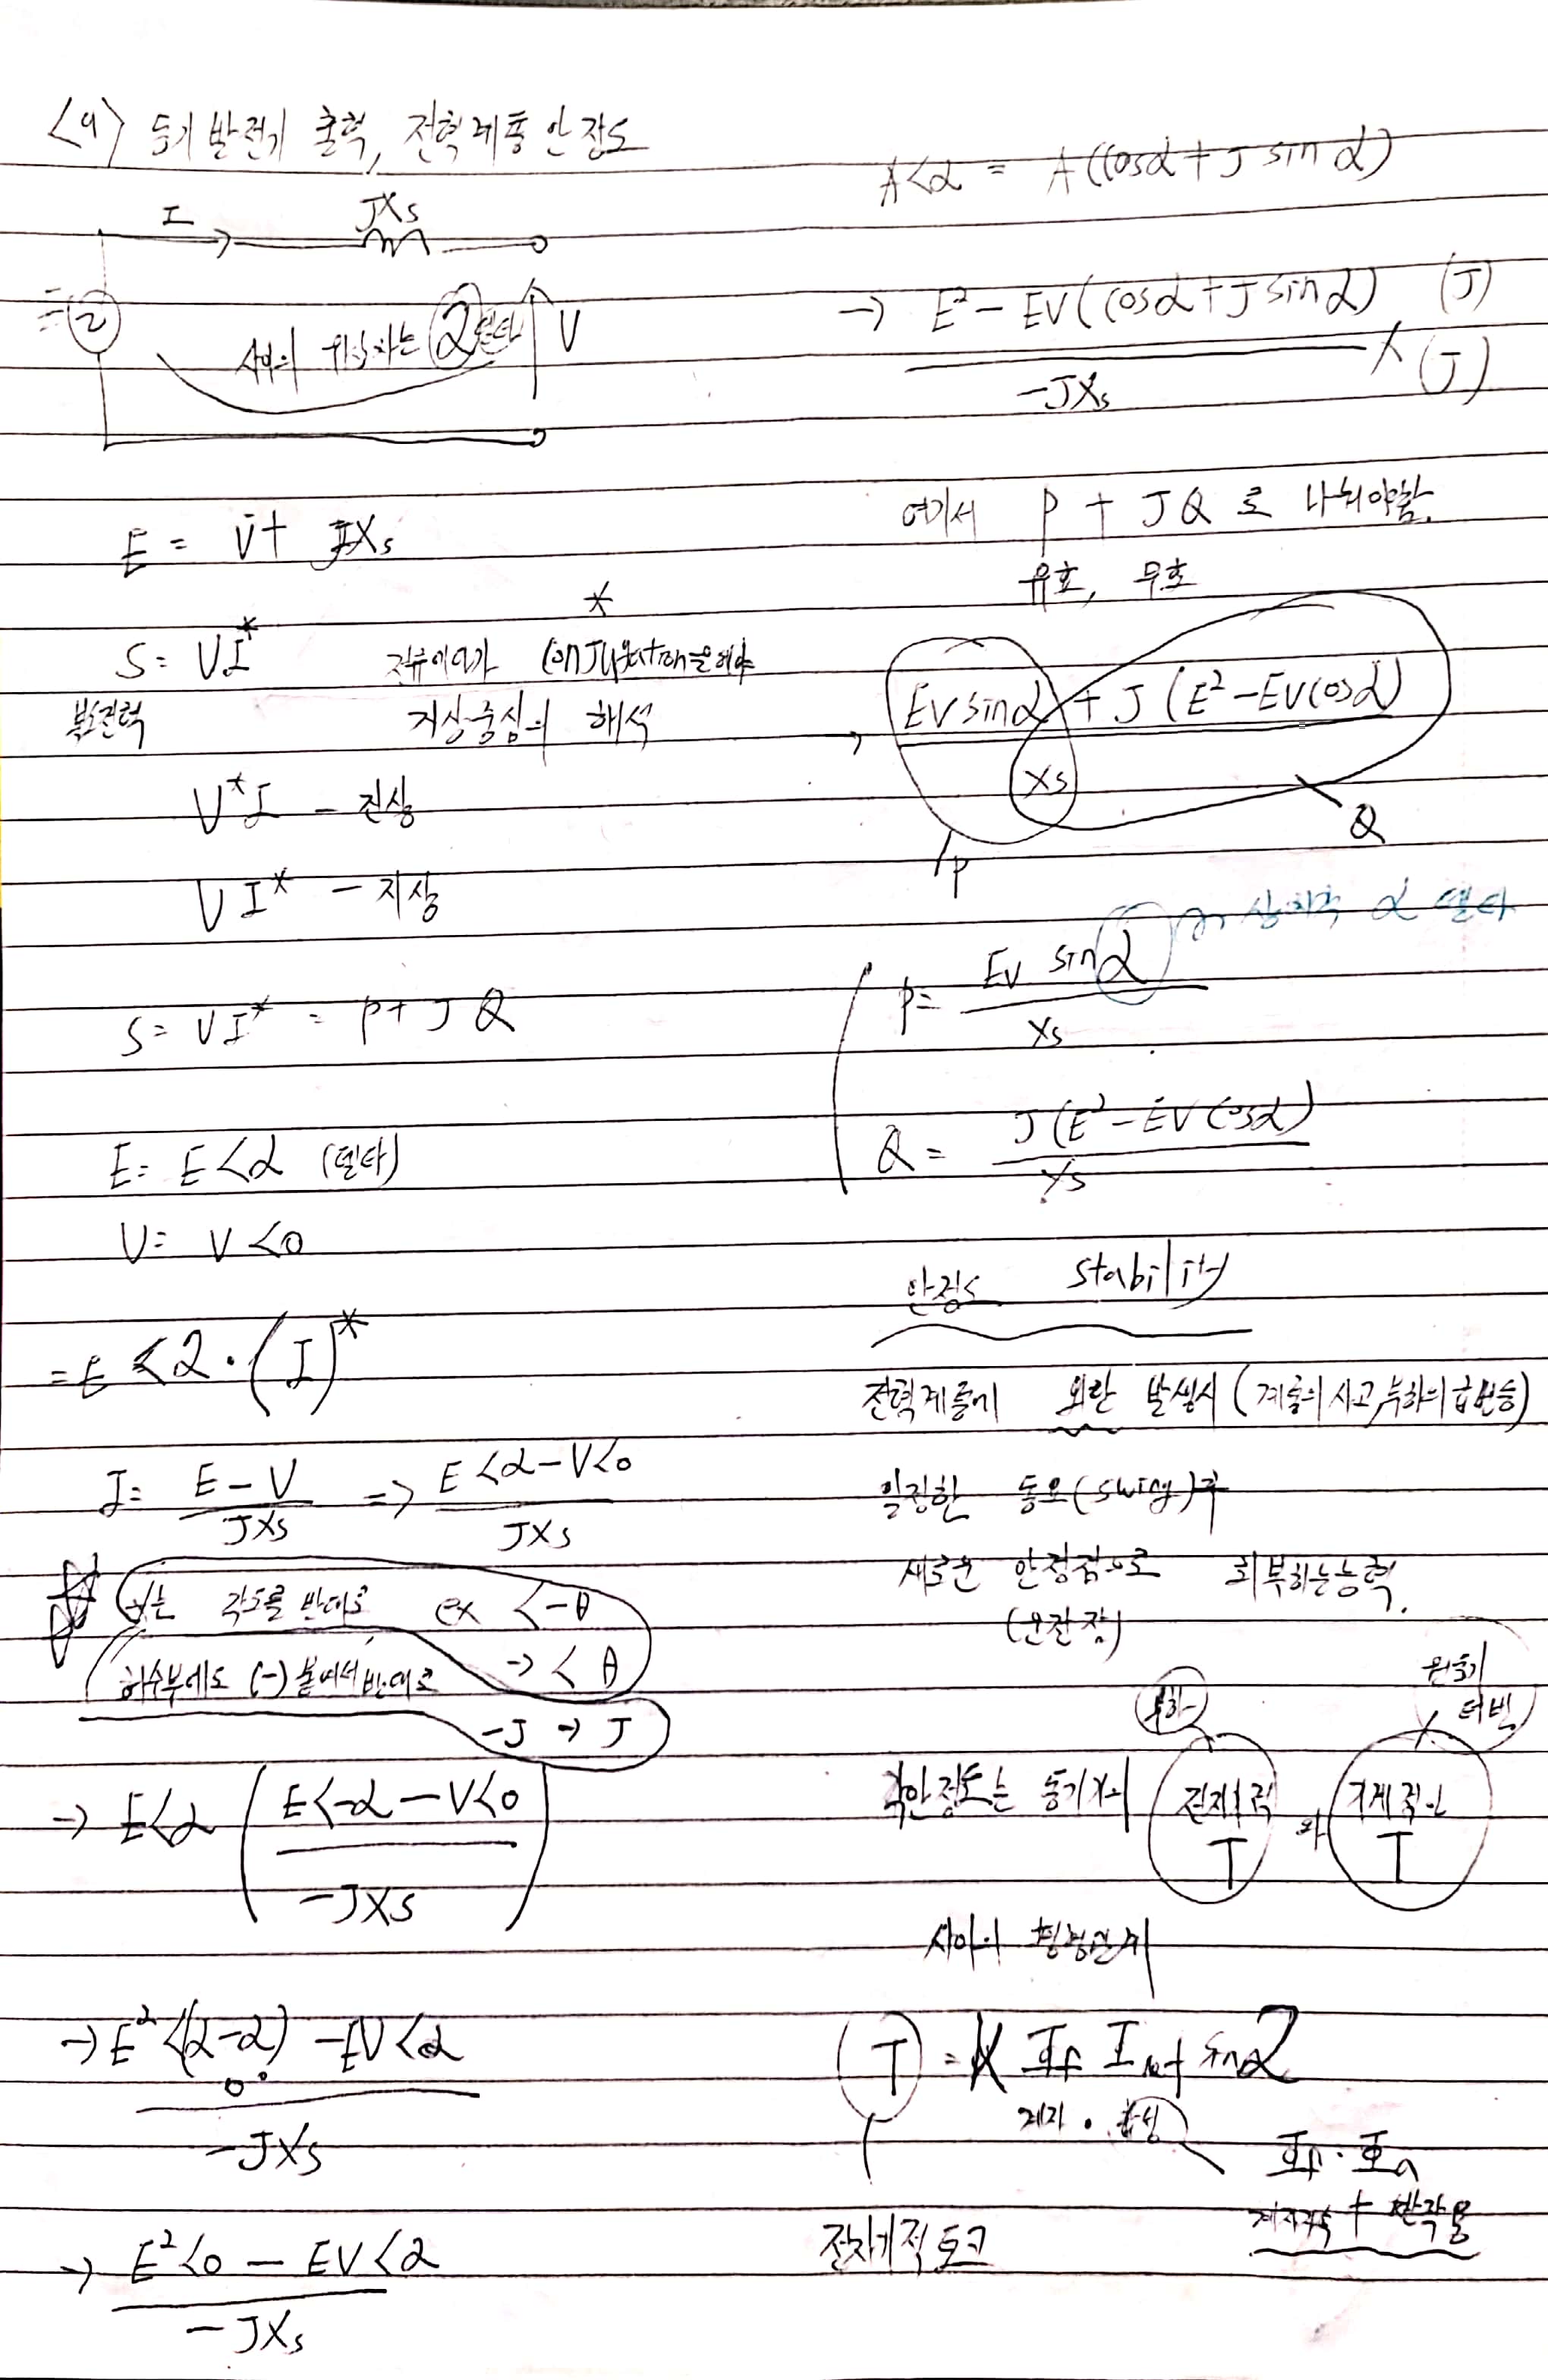 <9> 동기발전기 출력, 전력계통 안정도
I
JXs
V
E = V + JXs
S = VI* 전류에다가 Conjugation을해야
복소전력 지상중심의 해석
V*I - 진상
VI* - 지상
S = VI* = P + JQ
E = E<α (델타)
V = V<0
= E<α · (I)*
I = E - V / JXs => E<α - V<0 / JXs
*는 각도를 반대로 ex <-θ
-> <θ
허수부에도 (-) 붙여서 반대로
-J -> J
-> E<α ( E<-α - V<0 / -JXs )
-> E²<(α-α) - EV<α
0°
-JXs
-> E²<0 - EV<α
-JXs
A<α = A(cosα + J sinα)
-> E² - EV(cosα + J sinα) / -JXs × (J) / (J)
여기서 P + JQ 로 나눠야함.
유효, 무효
-> EV sinα + J(E² - EV cosα)
Xs
P
Q
P = EV sinα / Xs
α 델타
Q = J(E² - EV cosα) / Xs
안정도 Stability
전력계통에 외란 발생시 (계통의 사고, 부하의 급변등)
일정한 동요(swing)후
새로운 안정점으로 회복하는능력.
(운전점)
부하
원동기
터빈
각안정도는 동기기의 전자기적 T 와 기계적인 T
사이의 평형관계
T = K If Inet sinα
계자 · 합성
If · Ia
계자자속 + 반작용
전자기적 토크